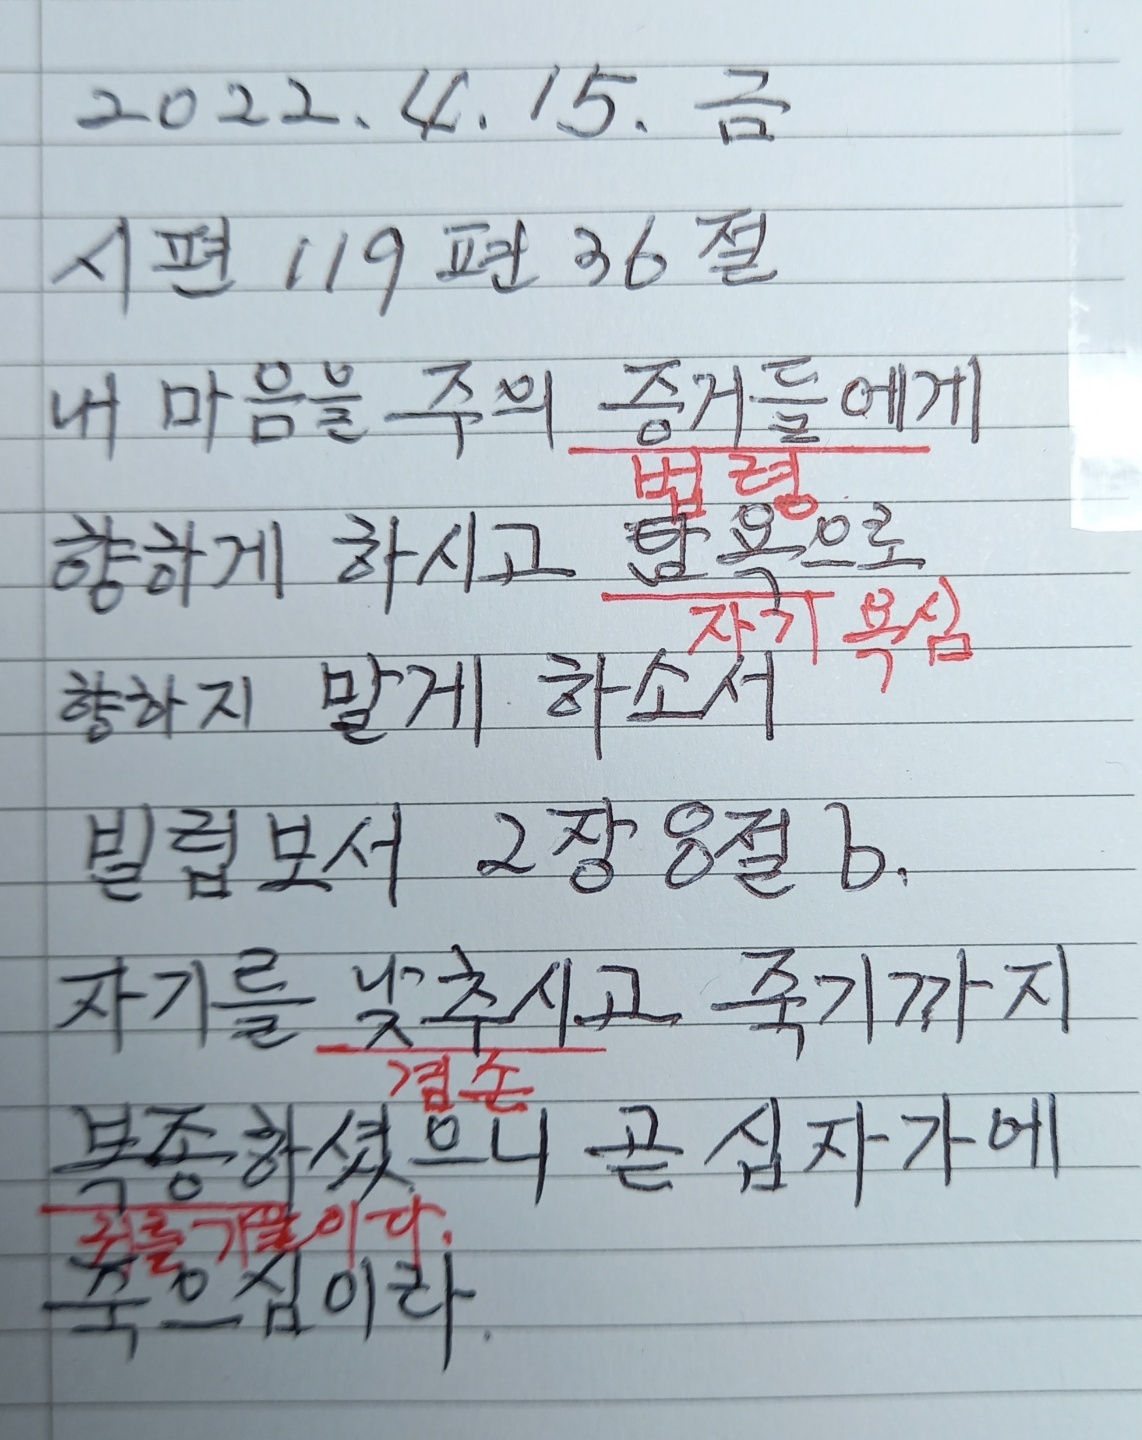 2022. 4. 15. 금
시편 119편 36절
내 마음을 주의 증거들에게
법령
향하게 하시고 탐욕으로
자기 욕심
향하지 말게 하소서
빌립보서 2장 8절 b.
자기를 낮추시고 죽기까지
겸손
복종하셨으니 곧 십자가에
귀를 기울이다.
죽으심이라.